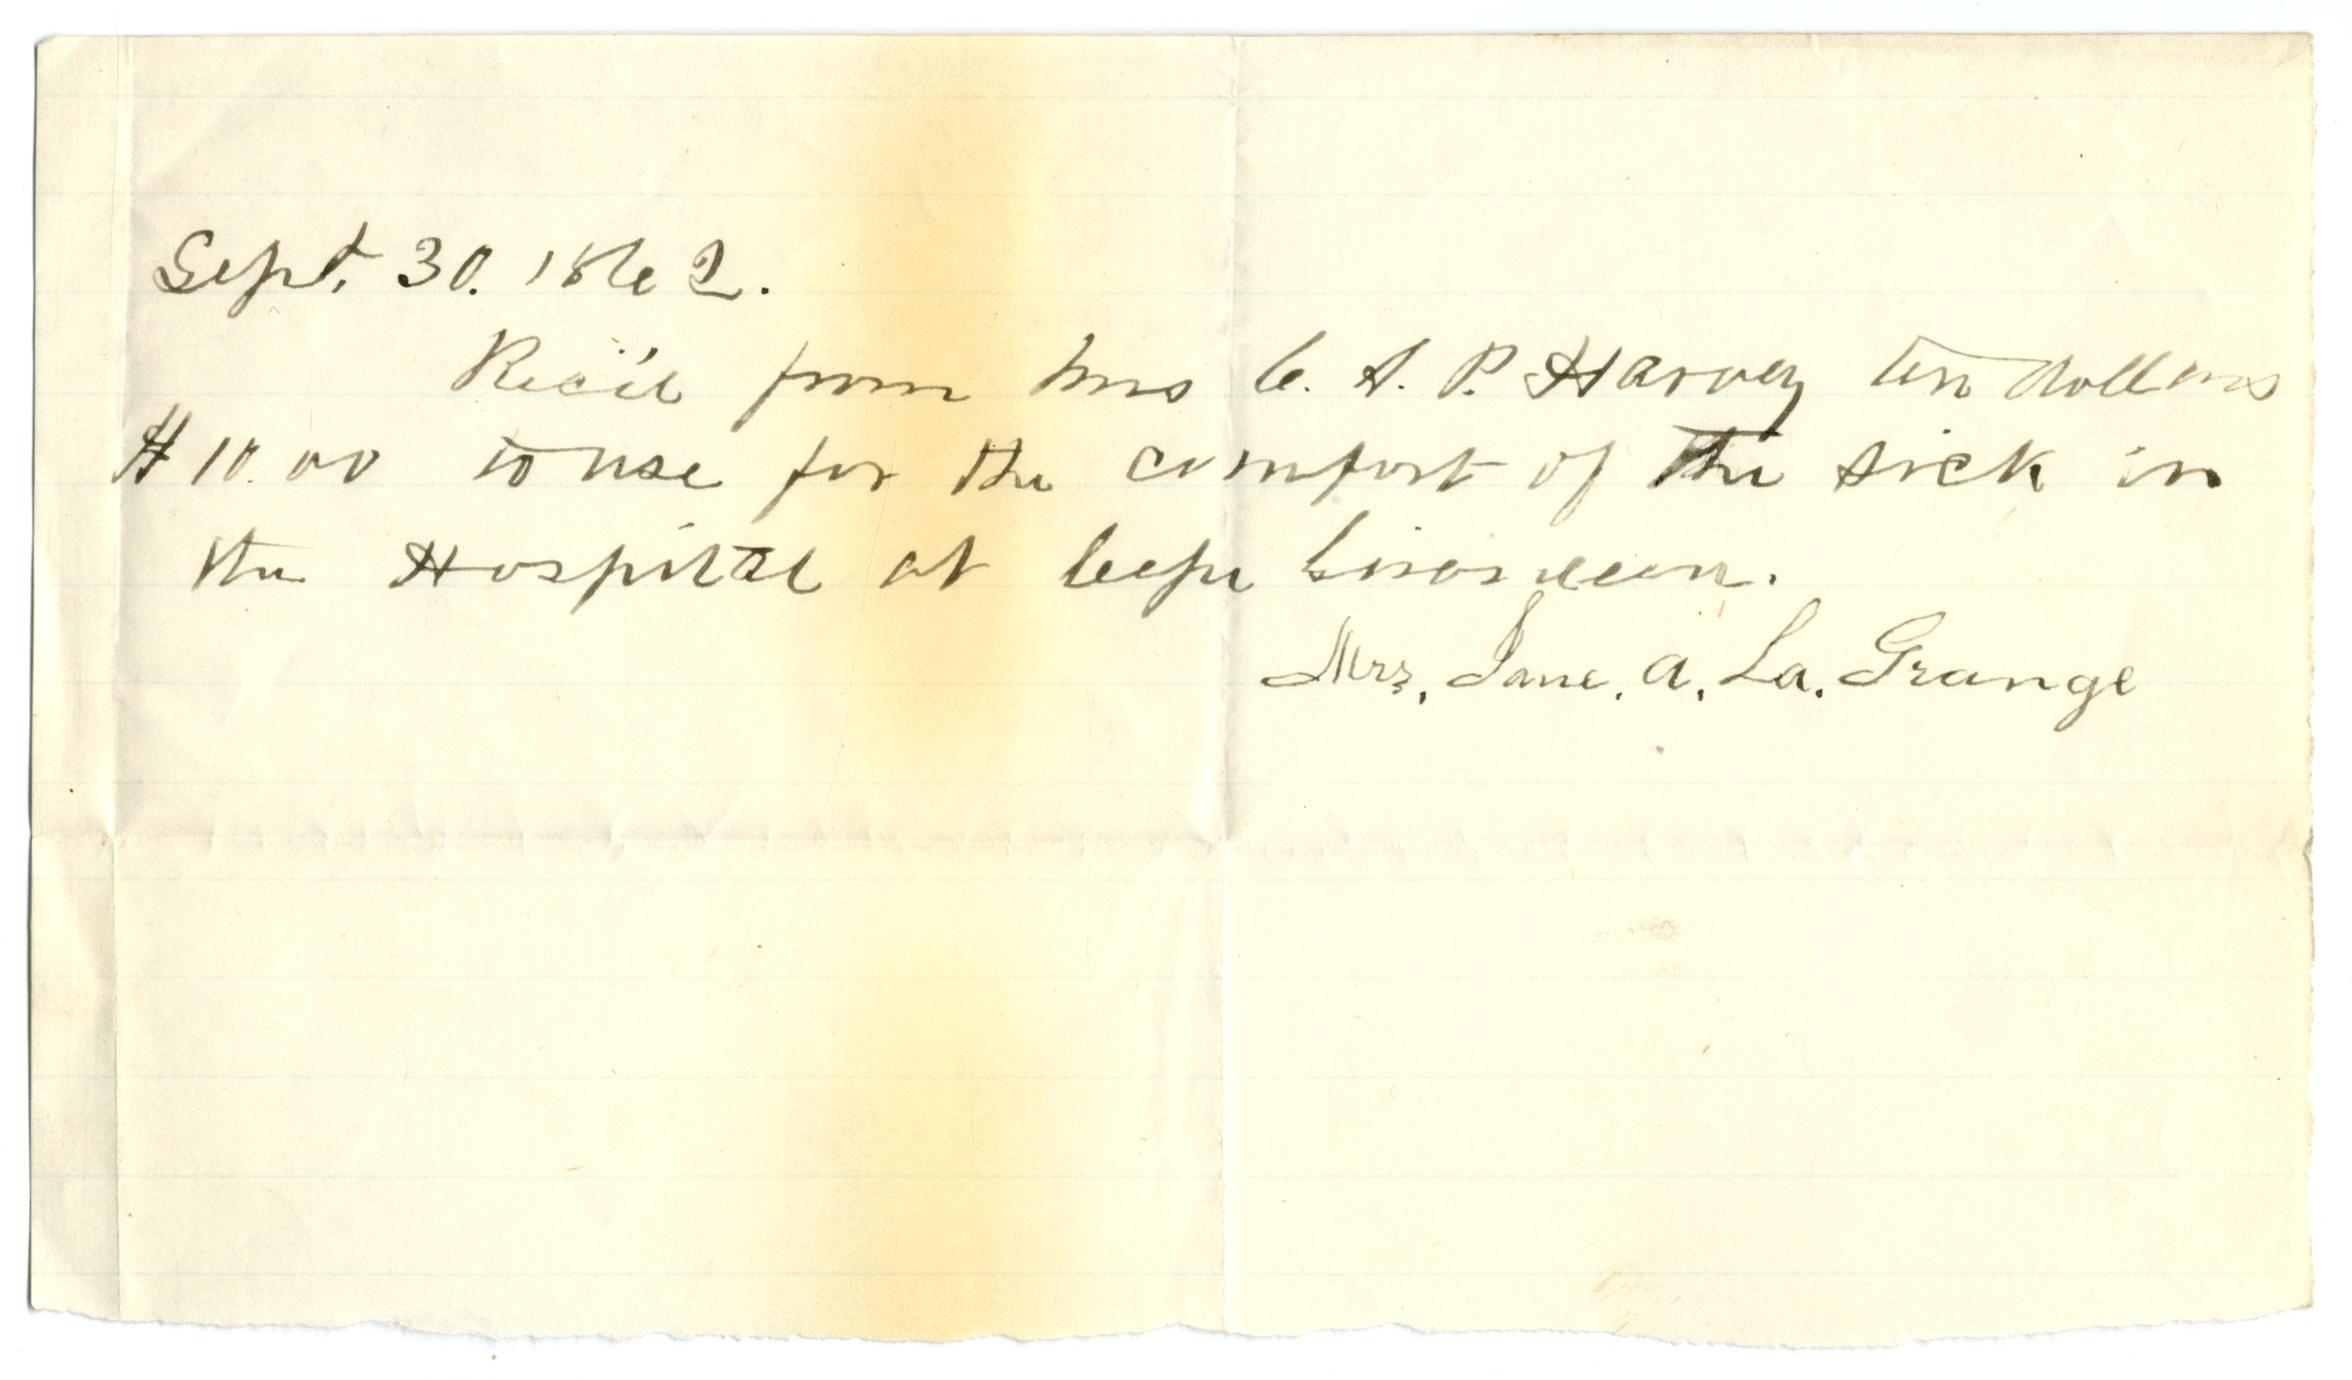 Sept. 30. 1862.
Rec'd from Mrs C. A. P. Harvey ten dollars
$10.00 to use for the comfort of the sick in
the Hospital at Cape Girardeau.
Mrs. Jane. A. La. Grange